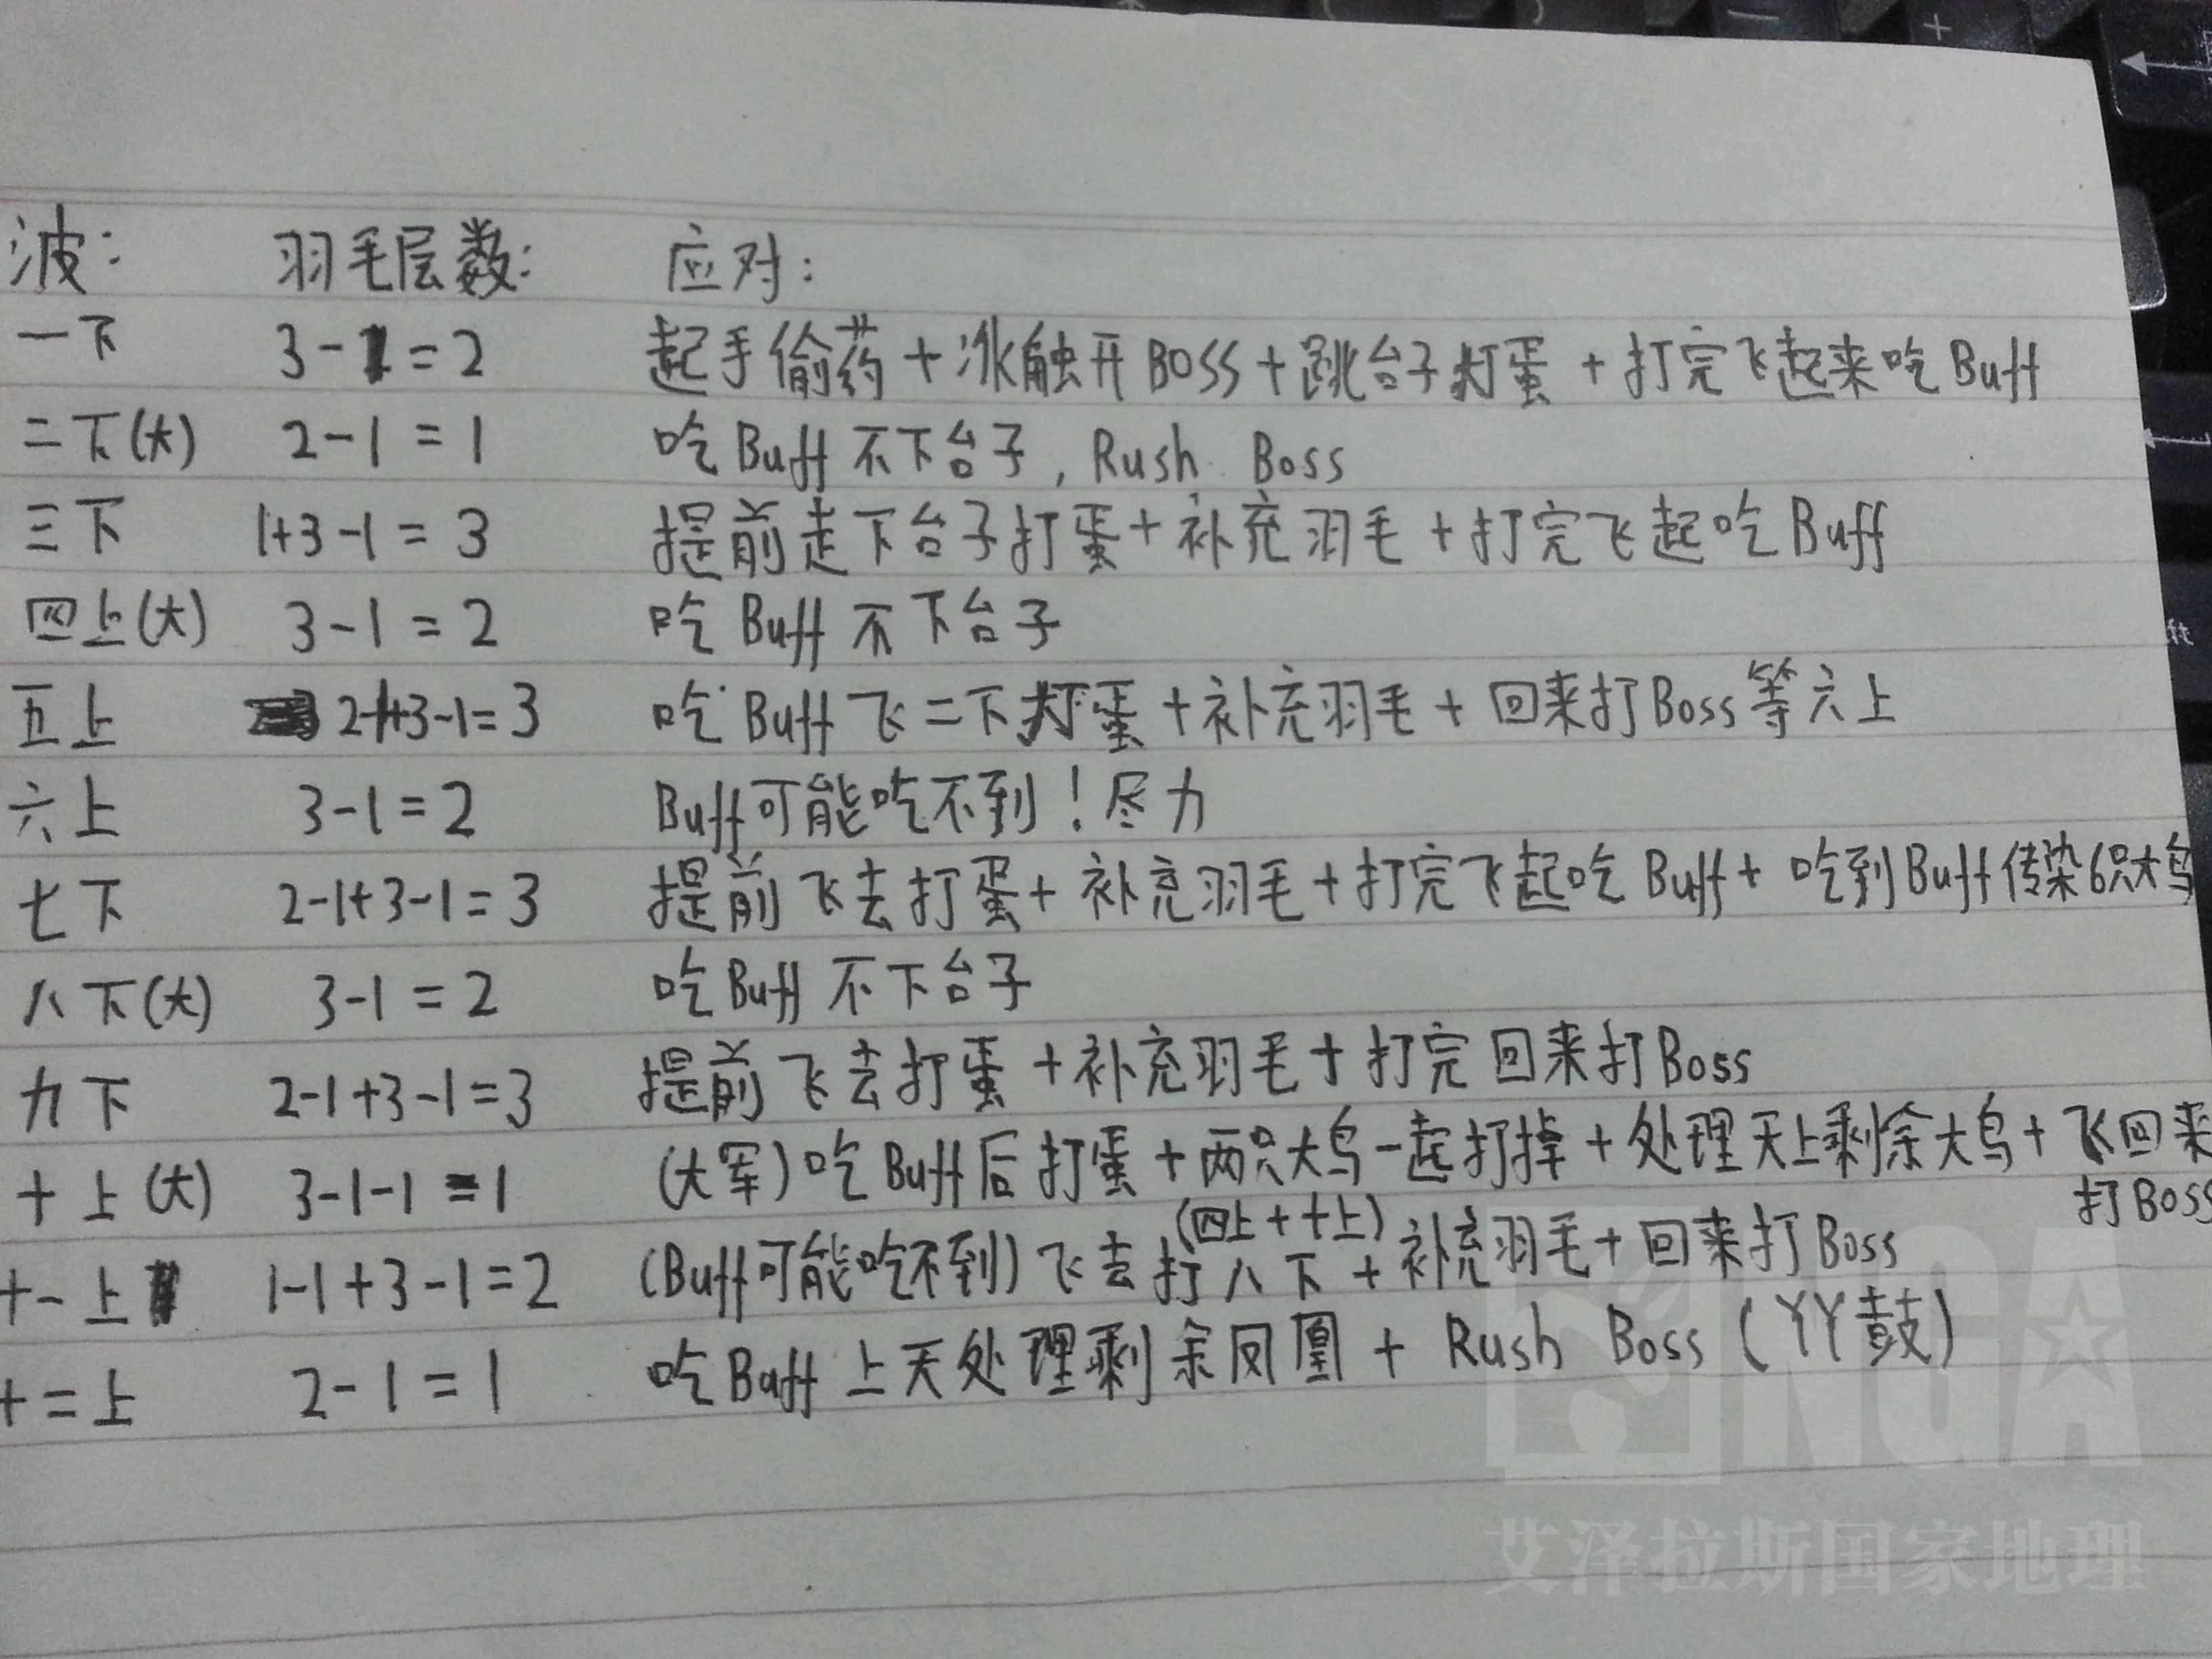 波： 羽毛层数： 应对：
一下 3-1=2 起手偷药+冰触开BOSS+跳台子打蛋+打完飞起来吃Buff
二下(大) 2-1=1 吃Buff不下台子，Rush Boss
三下 1+3-1=3 提前走下台子打蛋+补充羽毛+打完飞起吃Buff
四上(大) 3-1=2 吃Buff不下台子
五上 2-1+3-1=3 吃Buff飞二下打蛋+补充羽毛+回来打Boss等六上
六上 3-1=2 Buff可能吃不到！尽力
七下 2-1+3-1=3 提前飞去打蛋+补充羽毛+打完飞起吃Buff+吃到Buff传染6只大鸟
八下(大) 3-1=2 吃Buff不下台子
九下 2-1+3-1=3 提前飞去打蛋+补充羽毛+打完回来打Boss
十上(大) 3-1-1=1 (大军)吃Buff后打蛋+两只大鸟一起打掉+处理天上剩余大鸟+飞回来
打Boss
(四上+十上)
十一上 1-1+3-1=2 (Buff可能吃不到)飞去打八下+补充羽毛+回来打Boss
十二上 2-1=1 吃Buff上天处理剩余凤凰+Rush Boss(YY鼓)
NGA
艾泽拉斯国家地理